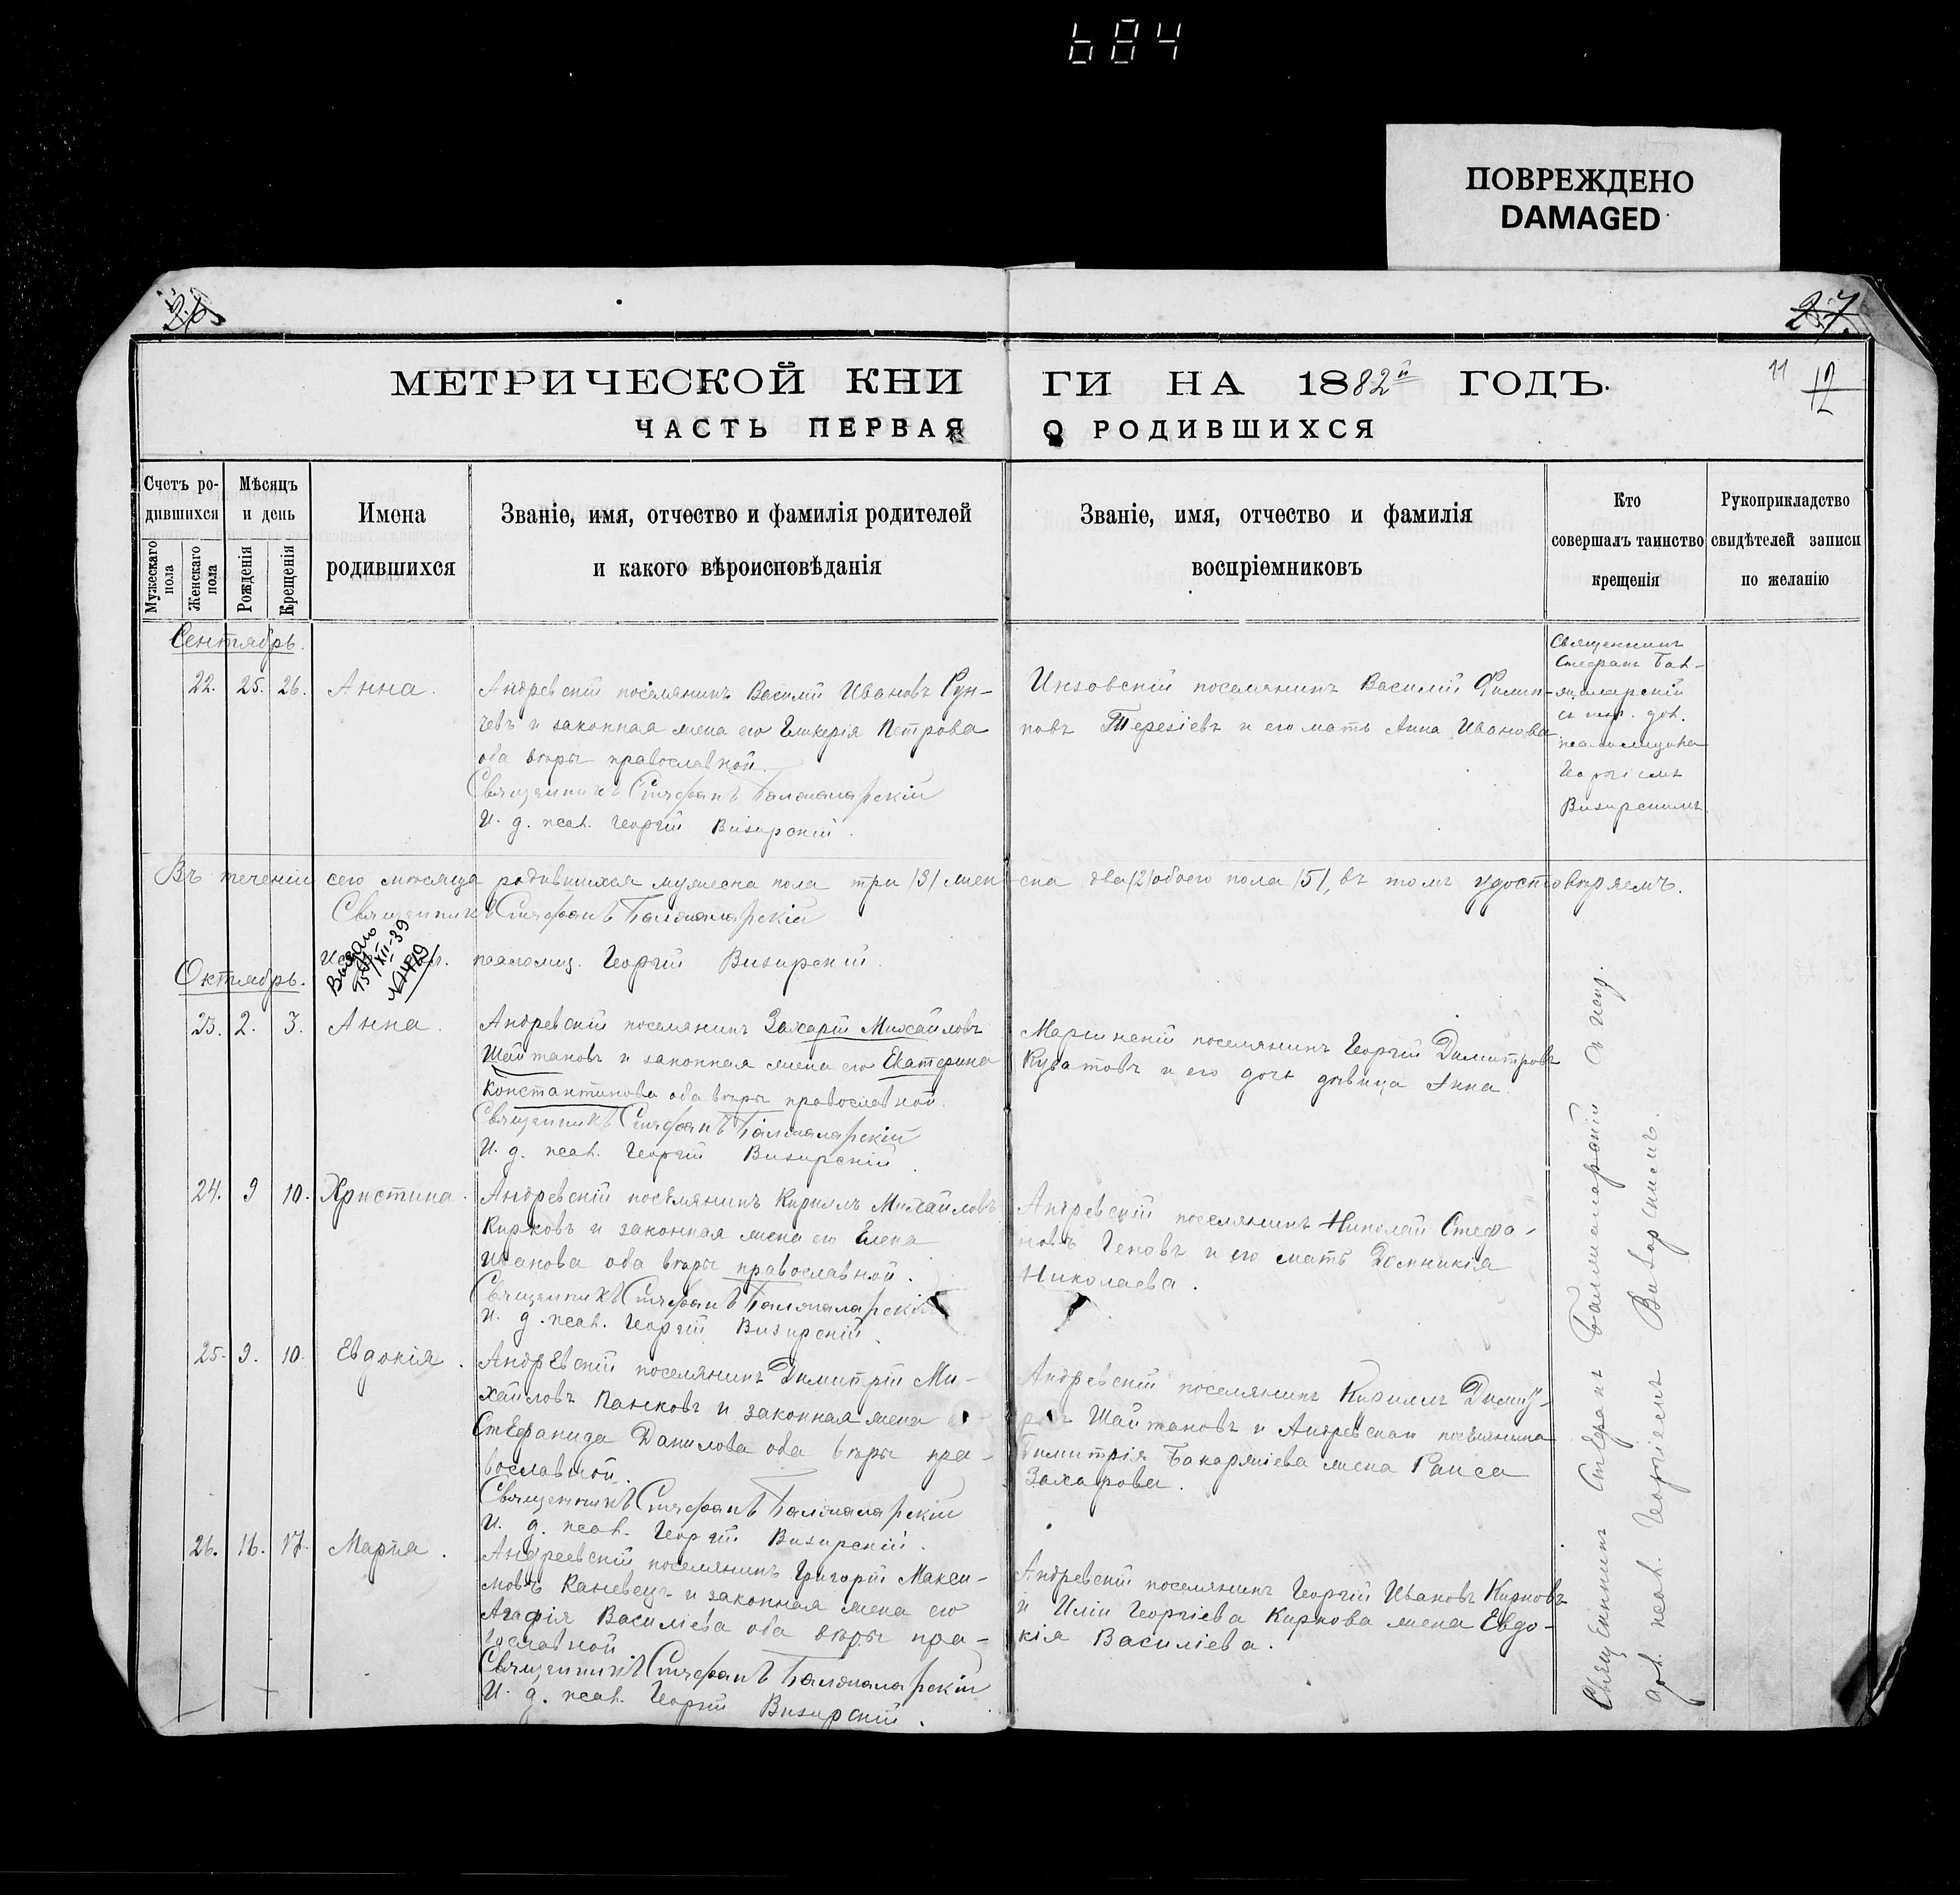 684
ПОВРЕЖДЕНО
DAMAGED
26
27
МЕТРИЧЕСКОЙ КНИ ГИ НА 1882й ГОДЪ.
11 12
ЧАСТЬ ПЕРВАЯ О РОДИВШИХСЯ
Счетъ ро-
дившихся
Мужескаго пола
Женскаго пола
Мѣсяцъ
и день
Рожденія
Крещенія
Имена
родившихся
Званіе, имя, отчество и фамилія родителей
и какого вѣроисповѣданія
Званіе, имя, отчество и фамилія
воспріемниковъ
Кто
совершалъ таинство
крещенія
Рукоприкладство
свидѣтелей записи
по желанію
Сентябрь.
22. 25. 26. Анна.
Андревскій поселянинъ Василій Ивановъ Рун-
чевъ и законная жена его Гликерія Петрова
оба вѣры православной.
Священникъ Стефанъ
И. д. псал. Георгій Визирскій.
Инзовскій поселянинъ Василій Филип-
повъ Терезіевъ и его мать Анна Иванова
Священникъ
Стефанъ
псаломщика
Георгіемъ
Визирскимъ
Въ теченіи сего мѣсяца родившихся мужеска пола три /3/ жен ска два /2/ обоего пола /5/, въ томъ удостовѣряемъ.
Священникъ Стефанъ
псаломщ. Георгій Визирскій.
Октябрь.
Выдано
XII-39
23. 2. 3. Анна.
Андревскій поселянинъ Захарій Михайловъ
Шайтановъ и законная жена его Екатерина
Константинова оба вѣры православной.
Священникъ Стефанъ
И. д. псал. Георгій Визирскій.
Маріинскій поселянинъ Георгій Димитровъ
Куватовъ и его дочь дѣвица Анна
24. 9 10. Христина.
Андревскій поселянинъ Кириллъ Михайловъ
Кирковъ и законная жена его Елена
Иванова оба вѣры православной.
Священникъ Стефанъ
И. д. псал. Георгій Визирскій.
Андревскій поселянинъ Николай Стефа-
новъ Геновъ и его мать Домникія
Николаева.
25. 9. 10. Евдокія.
Андревскій поселянинъ Димитрій Ми-
хайловъ Панковъ и законная жена
Стефанида Данилова оба вѣры пра-
вославной.
Священникъ Стефанъ
И. д. псал. Георгій Визирскій.
Андревскій поселянинъ Кириллъ Димит-
Шайтановъ и Андревскаго поселянина
Димитрія жена Раиса
Захарова.
26. 16. 17. Марія.
Андреевскій поселянинъ Григорій Макси-
мовъ Каневецъ и законная жена его
Агафія Василіева оба вѣры пра-
вославной
Священникъ Стефанъ
И. д. псал. Георгій Визирскій.
Андревскій поселянинъ Георгій Ивановъ Кирковъ
и Иліи Георгіева Киркова жена Евдо-
кія Василіева.
Священникъ Стефанъ
псал. Георгіемъ Визирскимъ.